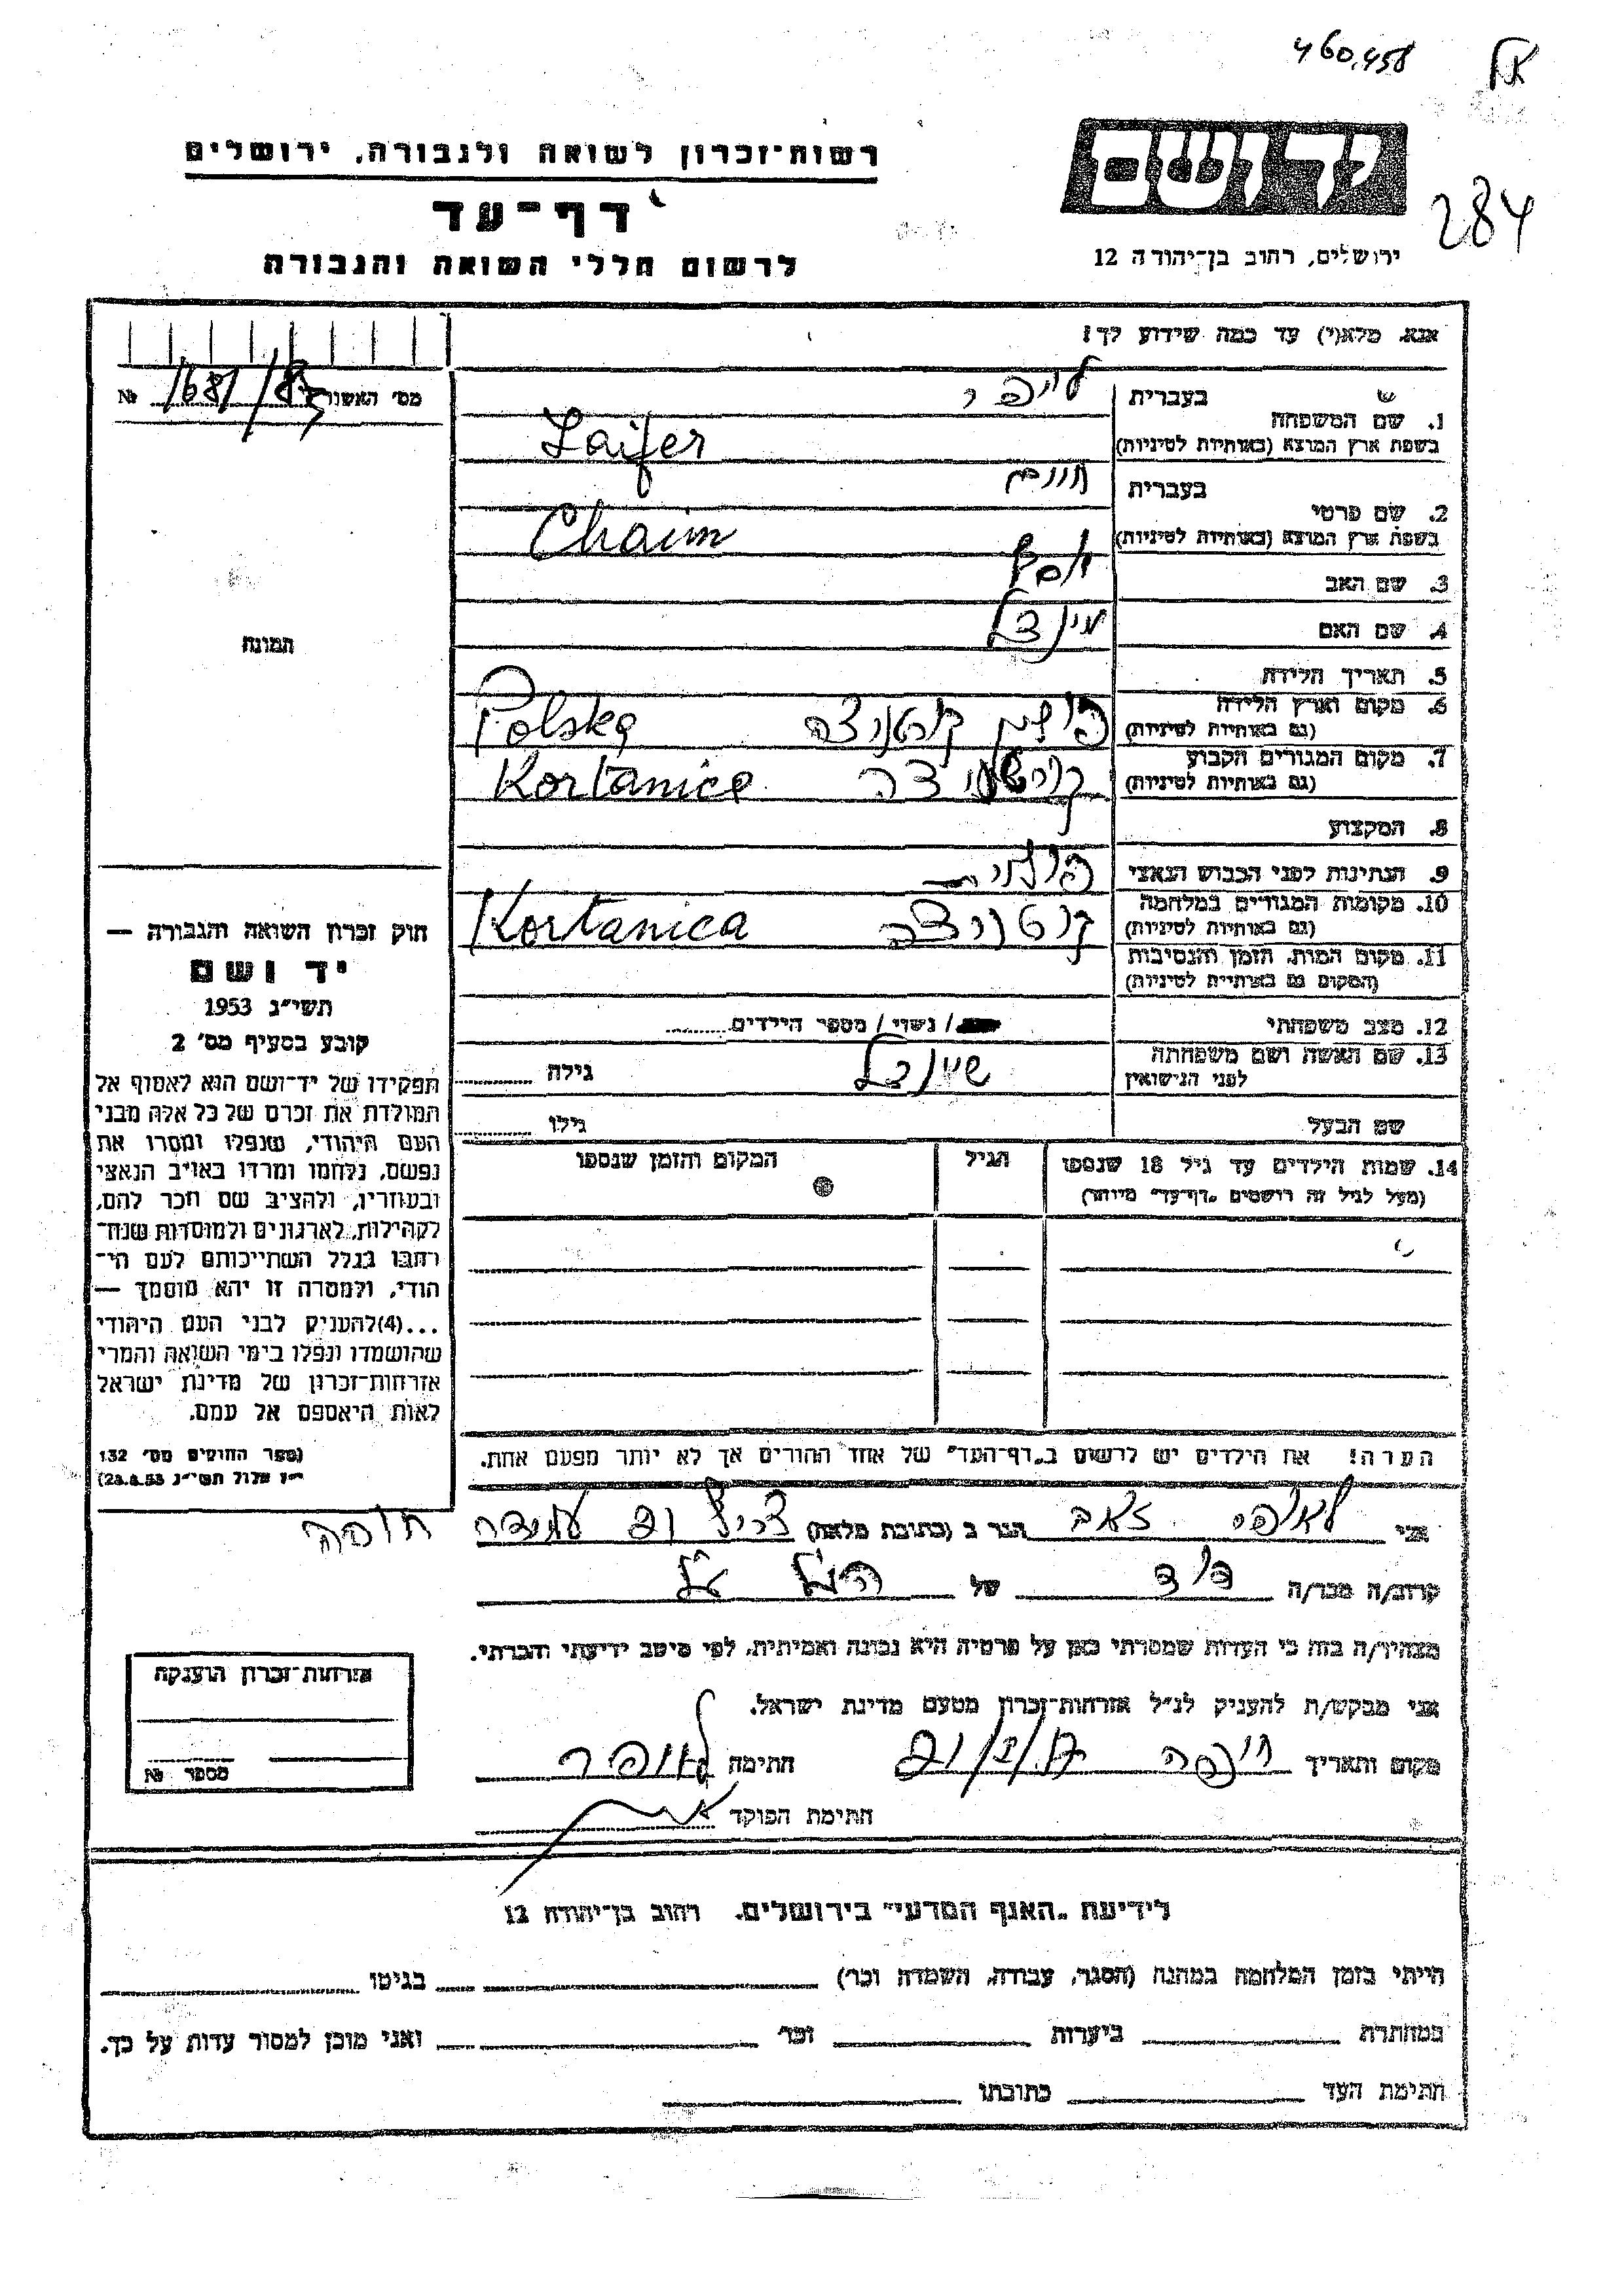 460,458
284
יד ושם
ירושלים, רחוב בן־יהודה 12
רשות־זכרון לשואה ולגבורה, ירושלים
דף־עד
לרשום חללי השואה והגבורה
אנא, מלא(י) עד כמה שידוע לך!
מס׳ האשור № 1681/85
1. שם המשפחה בעברית לייפר
בשפת ארץ המוצא (באותיות לטיניות) Laifer
2. שם פרטי בעברית חיים
בשפת ארץ המוצא (באותיות לטיניות) Chaim
3. שם האב
4. שם האם
5. תאריך הלידה
6. מקום וארץ הלידה (גם באותיות לטיניות) פולין קורטניצה Polska
7. מקום המגורים הקבוע (גם באותיות לטיניות) Kortanica
8. המקצוע
9. הנתינות לפני הכבוש הנאצי פולנית
10. מקומות המגורים במלחמה (גם באותיות לטיניות) קורטניצה Kortanica
11. מקום המות, הזמן והנסיבות
(המקום גם באותיות לטיניות)
12. מצב משפחתי / נשוי / מספר הילדים
13. שם האשה ושם משפחתה לפני הנישואין שיינדל גילה
שם הבעל גילו
14. שמות הילדים עד גיל 18 שנספו
(מעל לגיל זה רושמים „דף־עד״ מיוחד)
הגיל
המקום והזמן שנספו
הערה! את הילדים יש לרשום ב„דף־העד״ של אחד ההורים אך לא יותר מפעם אחת.
תמונה
חוק זכרון השואה והגבורה —
יד ושם
תשי״ג 1953
קובע בסעיף מס׳ 2
תפקידו של יד־ושם הוא לאסוף אל
המולדת את זכרם של כל אלה מבני
העם היהודי, שנפלו ומסרו את
נפשם, נלחמו ומרדו באויב הנאצי
ובעוזריו, ולהציב שם וזכר להם,
לקהילות, לארגונים ולמוסדות שנח־
רבו בגלל השתייכותם לעם הי־
הודי, ולמטרה זו יהא מוסמך —
...(4)להעניק לבני העם היהודי
שהושמדו ונפלו בימי השואה והמרי
אזרחות־זכרון של מדינת ישראל
לאות היאספם אל עמם.
(ספר החוקים מס׳ 132
י״ז אלול תשי״ג 28.8.53)
אני לאיפר זאב הגר ב (כתובת מלאה) חיפה
קרוב/ה מכר/ה דוד של הנ״ל
מצהיר/ה בזה כי העדות שמסרתי כאן על פרטיה היא נכונה ואמיתית, לפי מיטב ידיעתי והכרתי.
אני מבקש/ת להעניק לנ״ל אזרחות־זכרון מטעם מדינת ישראל.
מקום ותאריך חיפה חתימה לאופר
חתימת הפוקד
אזרחות־זכרון הוענקה
מספר №
לידיעת „האגף המדעי״ בירושלים, רחוב בן־יהודה 12
הייתי בזמן המלחמה במחנה (הסגר, עבודה, השמדה וכו׳) בגיטו
במחתרת ביערות וכו׳ ואני מוכן למסור עדות על כך.
חתימת העד כתובתו